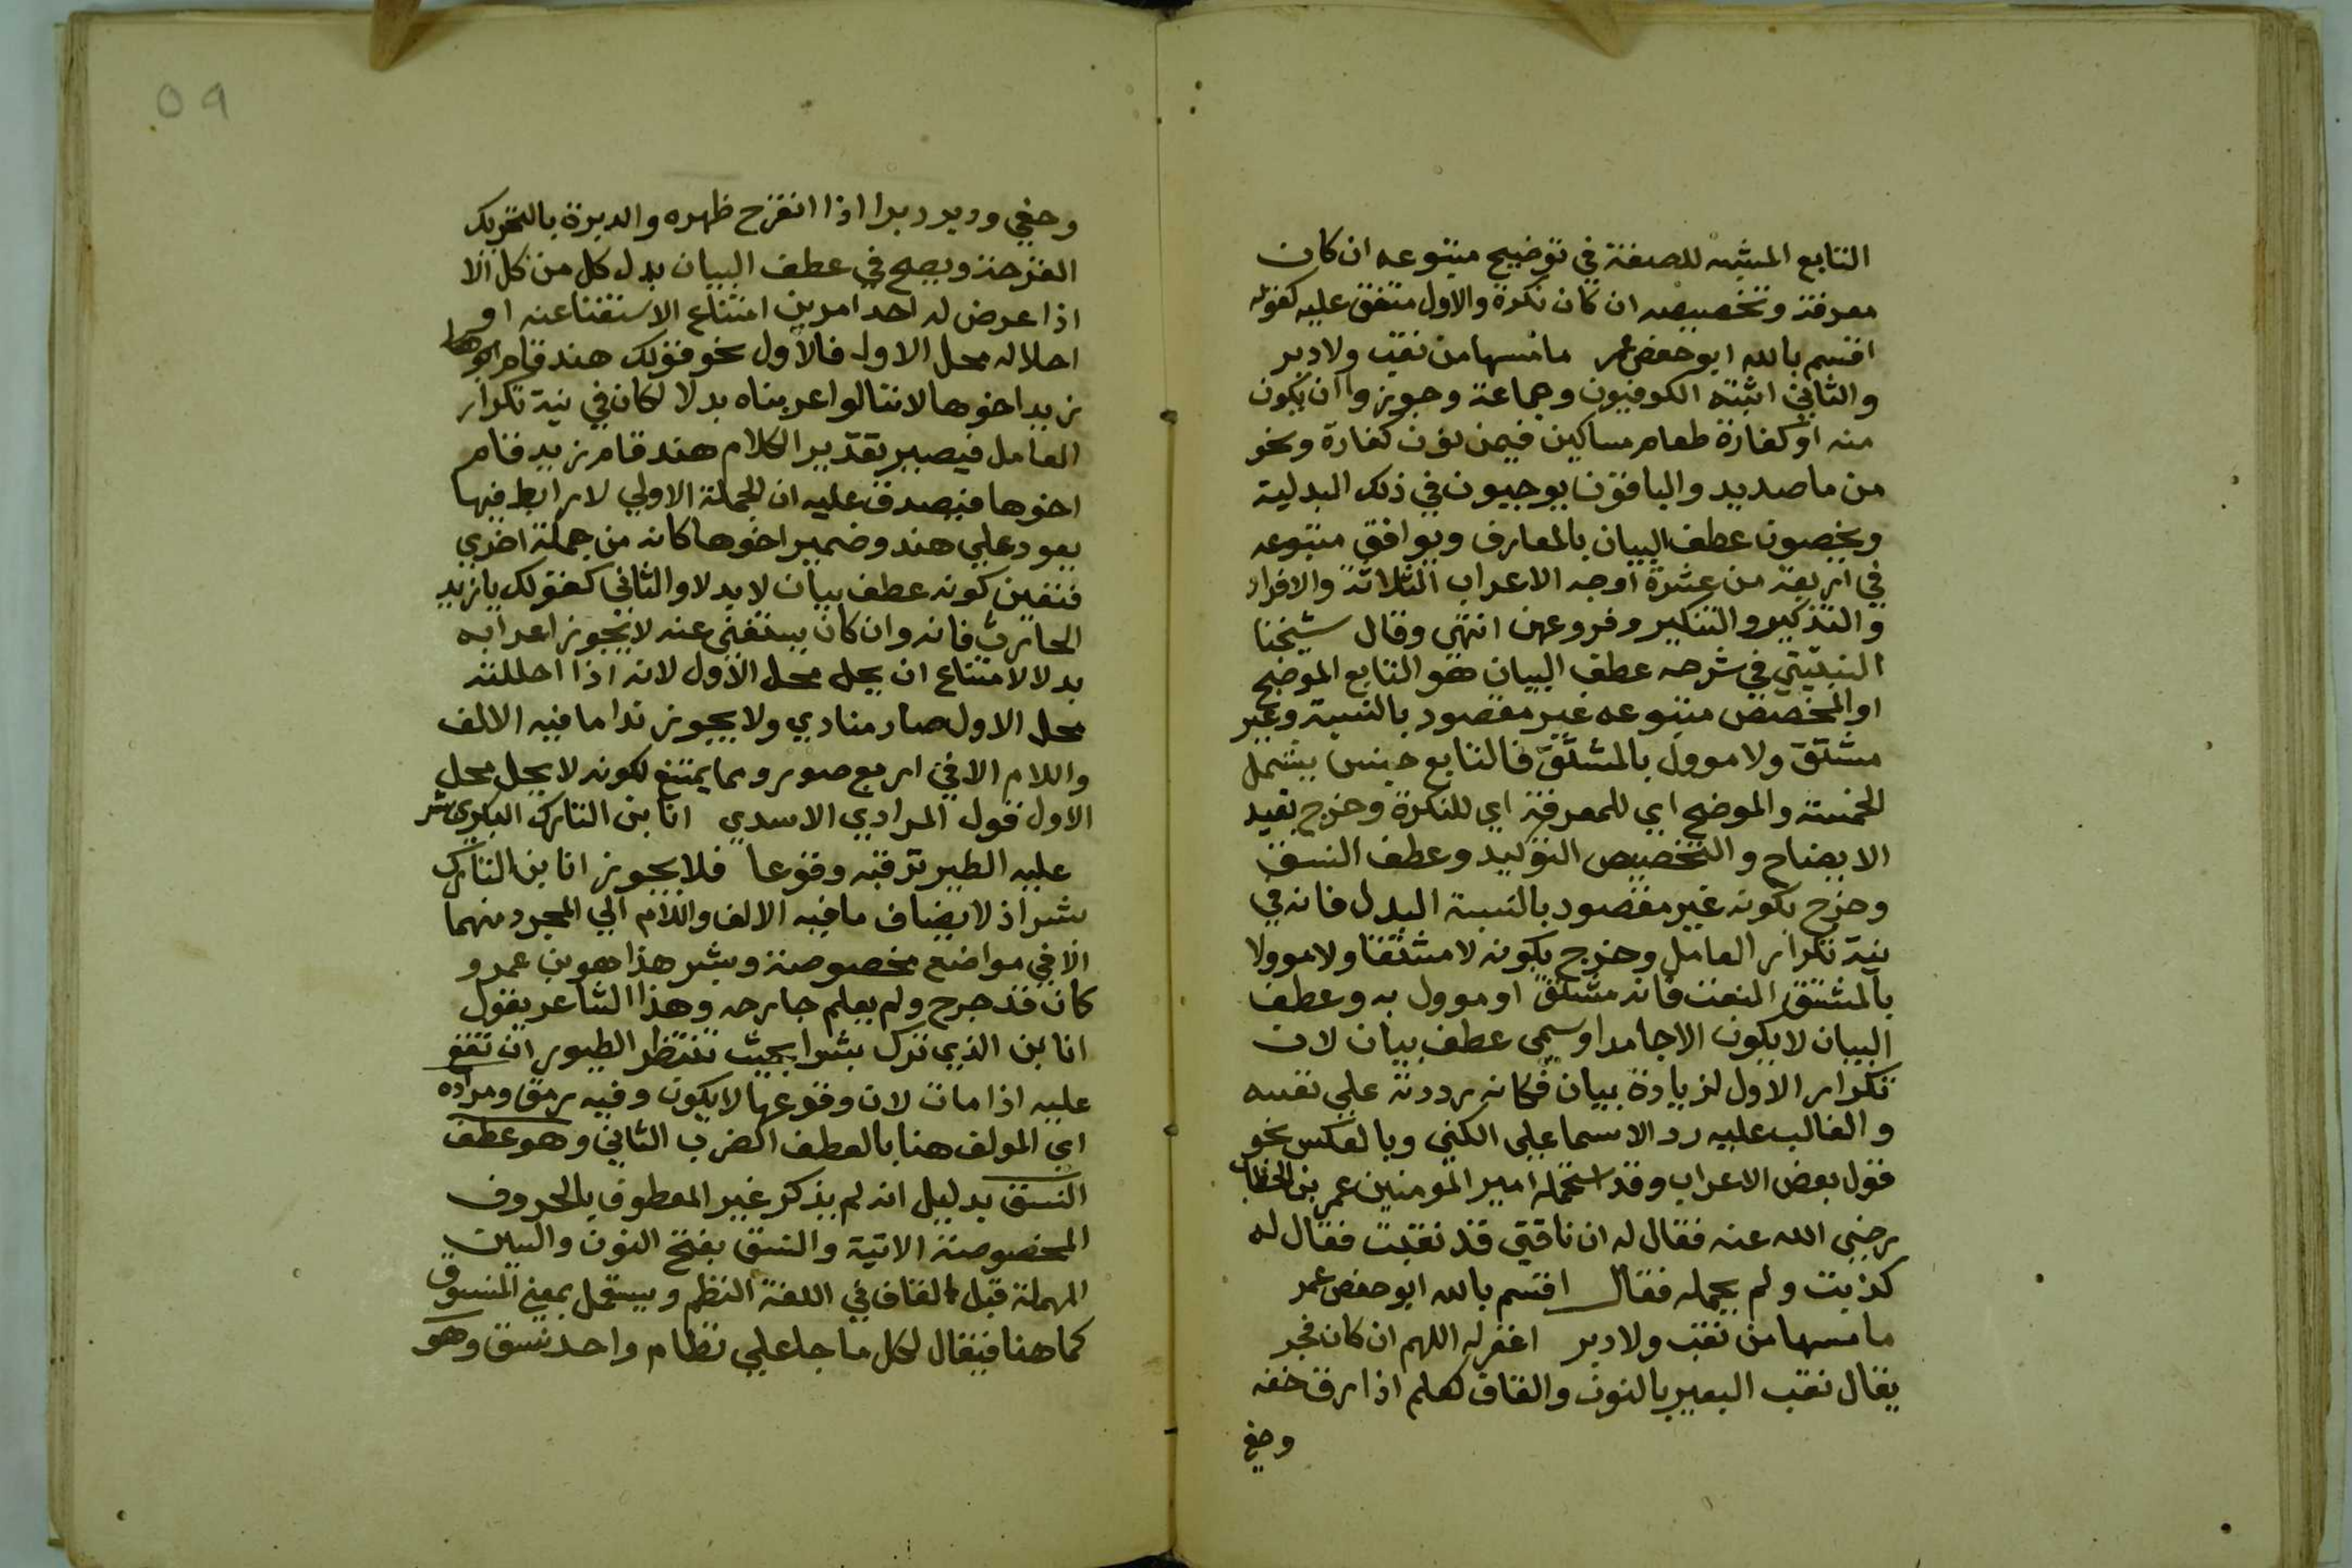 التابع المشبه للصفة في توضيح متبوعه ان كان
معرفة وتخصيصه ان كان نكرة والاول متفق عليه كقوله
اقسم بالله ابو حفص عمر ما مسها من نقب ولا دبر
والثاني اثبته الكوفيون وجماعة وجوزوا ان يكون
منه او كفارة طعام مساكين فيمن نون كفارة ونحو
من ما صديد والباقون يوجبون في ذلك البدلية
ويخصون عطف البيان بالمعارف ويوافق متبوعه
في اربعة من عشرة اوجه الاعراب الثلاثة والافراد
والتذكير والتنكير وفروعهن انتهى وقال شيخنا
النبتيتي في شرحه عطف البيان هو التابع الموضح
او المخصص متبوعه غير مقصود بالنسبة وغير
مشتق ولا موول بالمشتق فالتابع جنس يشمل
الخمسة والموضح اي للمعرفة اي للنكرة وخرج بقيد
الايضاح والتخصيص التوكيد وعطف النسق
وخرج بكونه غير مقصود بالنسبة البدل فانه في
نية تكرار العامل وخرج بكونه لا مشتقا ولا موولا
بالمشتق النعت فانه مشتق او موول به وعطف
البيان لا يكون الا جامدا وسمى عطف بيان لان
تكرار الاول لزيادة بيان فكانه رددته علي نفسه
والغالب عليه رد الاسما علي الكنى وبالعكس نحو
قول بعض الاعراب وقد استحمله امير المومنين عمر بن الخطاب
رضي الله عنه فقال له ان ناقتي قد نقبت فقال له
كذبت ولم يحمله فقال اقسم بالله ابو حفص عمر
ما مسها من نقب ولا دبر اغفر له اللهم ان كان فجر
يقال نقب البعير بالنون والقاف كعلم اذا رق خفه
وحفي
٥٩
وحفي ودبر دبرا اذا انقرح ظهره والدبرة بالتحريك
القرحة ويصح في عطف البيان بدل كل من كل الا
اذا عرض له احد امرين امتناع الاستغنا عنه او
احلاله محل الاول فالاول نحو قولك هند قام ابوها
زيد اخوها لاننا لو اعربناه بدلا لكان في نية تكرار
العامل فيصير تقدير الكلام هند قام زيد قام
اخوها فيصدق عليه ان الجملة الاولي لا رابط فيها
يعود علي هند وضمير اخوها كانه من جملة اخري
فتعين كونه عطف بيان لا بدلا والثاني كقولك يا زيد
الحارث فانه وان كان يستغني عنه لا يجوز اعرابه
بدلا لامتناع ان يحل محل الاول لانه اذا احللته
محل الاول صار منادي ولا يجوز ندا ما فيه الالف
واللام الا في اربع صور ومما يمتنع لكونه لا يحل محل
الاول قول المرادي الاسدي انا بن التارك البكري بشر
عليه الطير ترقبه وقوعا فلا يجوز انا بن التارك
بشر اذ لا يضاف ما فيه الالف واللام الي المجرد منهما
الا في مواضع مخصوصة وبشر هذا هو بن عمرو
كان قد جرح ولم يعلم جارحه وهذا الشاعر يقول
انا بن الذي ترك بشرا بحيث تنتظر الطيور ان تقع
عليه اذا مات لان وقوعها لا يكون وفيه رمق ومراده
اي المولف هنا بالعطف الضرب الثاني وهو عطف
النسق بدليل انه لم يذكر غير المعطوف بالحروف
المخصوصة الاتية والنسق بفتح النون والسين
المهملة قبل القاف في اللغة النظم ويستعمل بمعنى المنسوق
كما هنا فيقال لكل ما جا علي نظام واحد نسق وهو